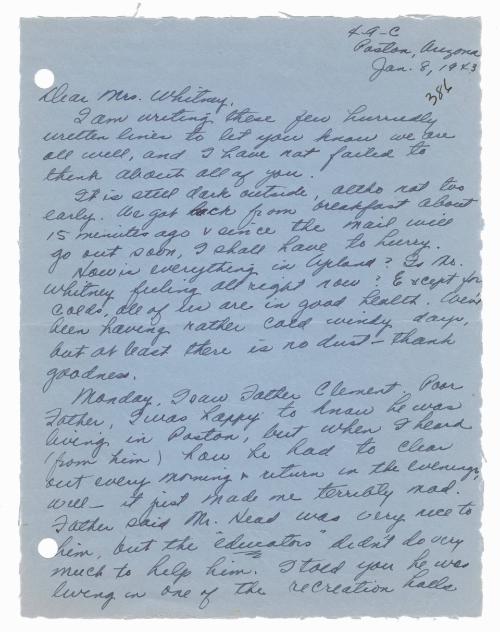 4-9-C
Poston, Arizona
Jan. 8, 1943
386
Dear Mrs. Whitney,
I am writing these few hurriedly
written lines to let you know we are
all well, and I have not failed to
think about all of you.
It is still dark outside, altho not too
early. We got back from breakfast about
15 minutes ago & since the mail will
go out soon, I shall have to hurry.
How is everything in Upland? Is Mr.
Whitney feeling all right now? Except for
colds, all of us are in good health.
been having rather cold windy days,
but at least there is no dust - thank
goodness.
Monday, I saw Father Clement. Poor
Father, I was happy to know he was
living in Poston, but when I heard
(from him) how he had to clear
out every morning & return in the evenings,
well - it just made me terribly mad.
Father said Mr. Head was very nice to
him, but the "educators" didn't do very
much to help him. I told you he was
living in one of the recreation halls